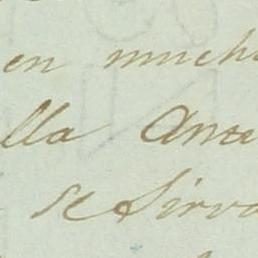 en mucho
lla Ante
se sirva